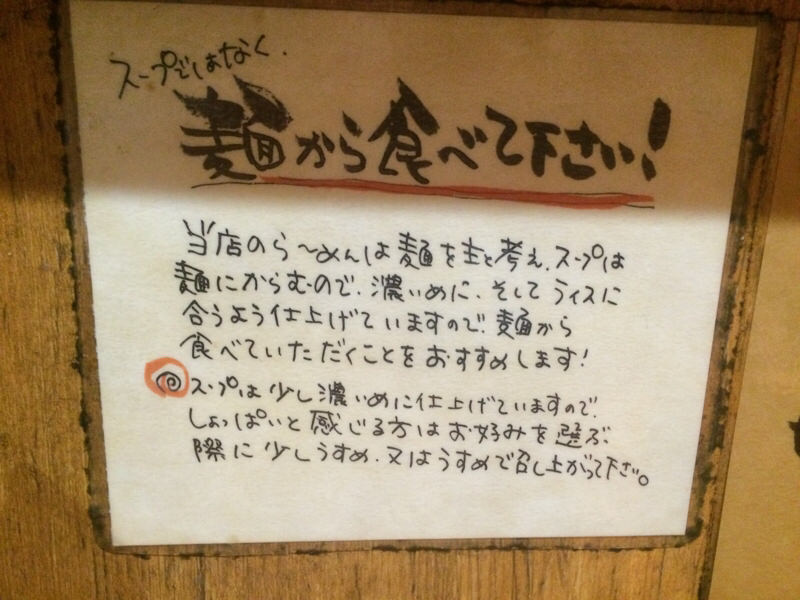 スープではなく、
麺から食べて下さい！
当店のら～めんは麺を主と考え、スープは
麺にからむので、濃いめに、そしてライスに
合うよう仕上げていますので、麺から
食べていただくことをおすすめします！
スープは少し濃いめに仕上げていますので、
しょっぱいと感じる方はお好みを選ぶ
際に少しうすめ、又はうすめで召し上がって下さい。